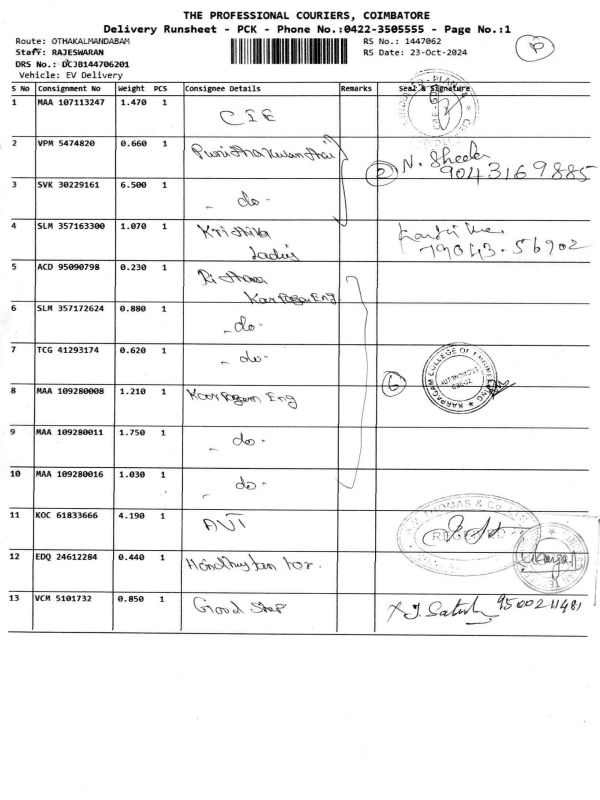 THE PROFESSIONAL COURIERS, COIMBATORE
Delivery Runsheet - PCK - Phone No.:0422-3505555 - Page No.:1
Route: OTHAKALMANDABAM
RS No.: 1447062
P
Staff: RAJESWARAN
RS Date: 23-Oct-2024
DRS No.: DCJB144706201
Vehicle: EV Delivery
S No Consignment No Weight PCS Consignee Details Remarks Seal & Signature
1 MAA 107113247 1.470 1
2 VPM 5474820 0.660 1 2 N. Sheela
9043169885
3 SVK 30229161 6.500 1 - do -
4 SLM 357163300 1.070 1 Krithika
79043-56902
5 ACD 95090798 0.230 1
Karpagam Eng
6 SLM 357172624 0.880 1 - do -
7 TCG 41293174 0.620 1 - do -
KARPAGAM COLLEGE OF ENGINEERING
AUTONOMOUS
8 MAA 109280008 1.210 1 Karpagam Eng 6
9 MAA 109280011 1.750 1 - do -
10 MAA 109280016 1.030 1 - do -
11 KOC 61833666 4.190 1 AVT
THOMAS & Co
12 EDQ 24612284 0.440 1
13 VCM 5101732 0.850 1 Good Step J. Satish 9500211481